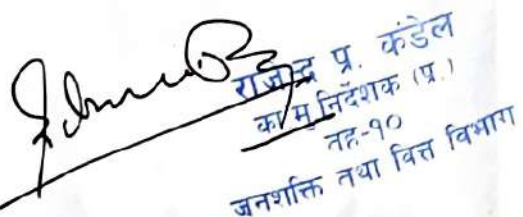 राजेन्द्र प्र. कंडेल
का मु निर्देशक (प्र.)
तह-१०
जनशक्ति तथा वित्त विभाग